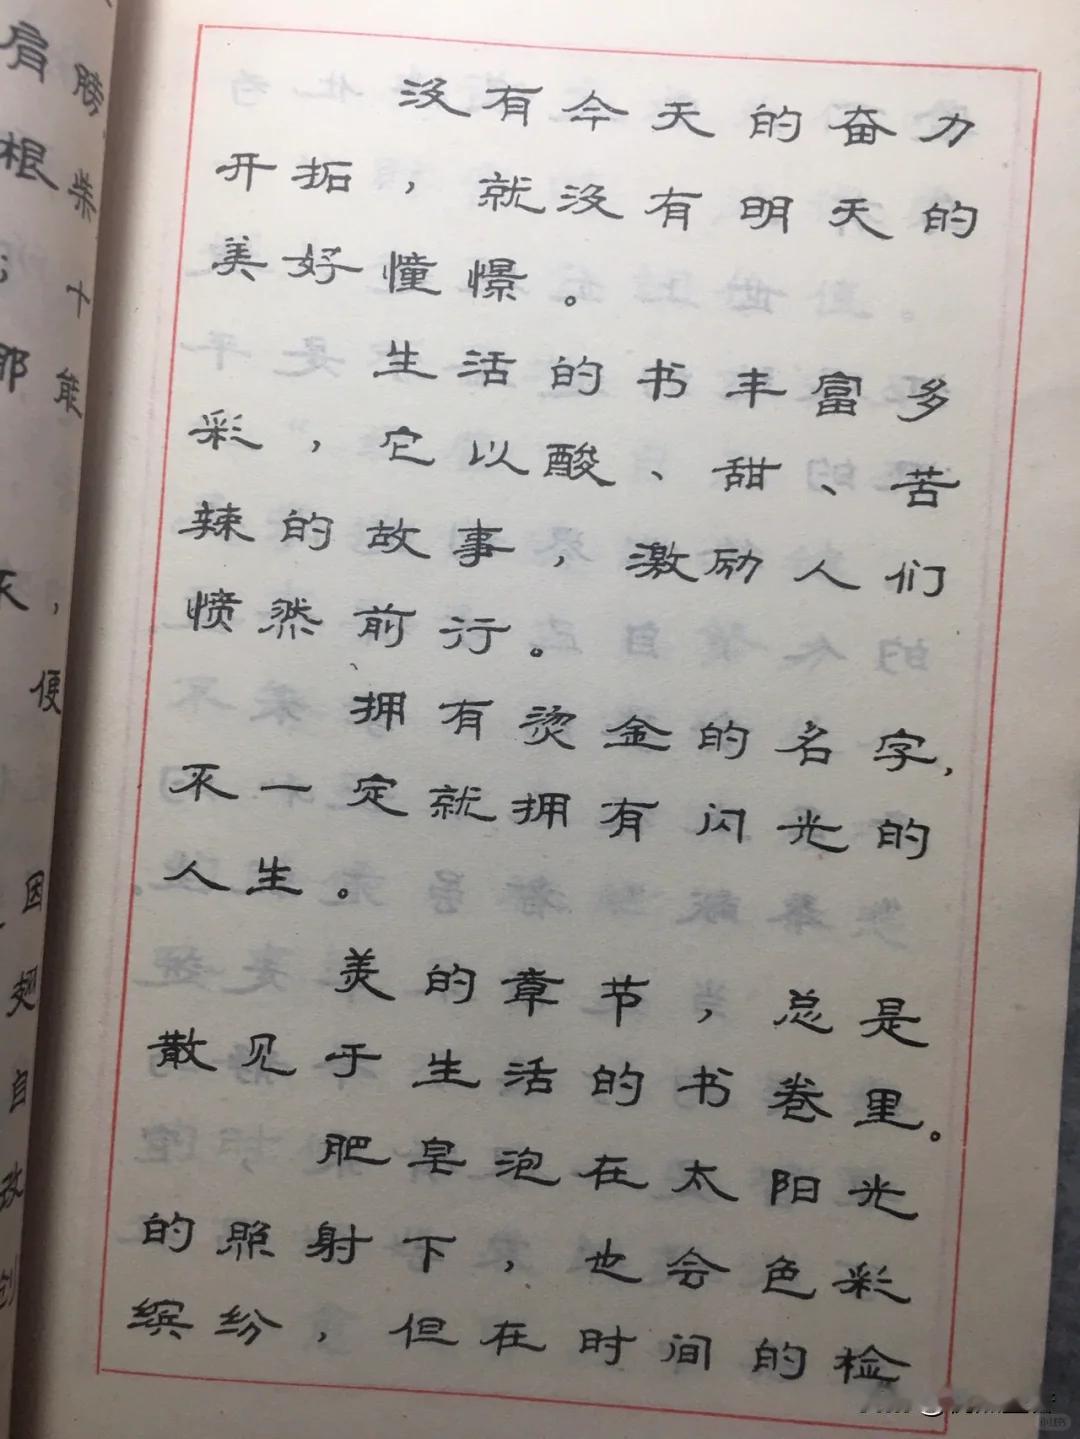 没有今天的奋力
开拓，就没有明天的
美好憧憬。
生活的书丰富多
彩，它以酸、甜、苦
辣的故事，激励人们
愤然前行。
拥有烫金的名字，
不一定就拥有闪光的
人生。
美的章节，总是
散见于生活的书卷里。
肥皂泡在太阳光
的照射下，也会色彩
缤纷，但在时间的检